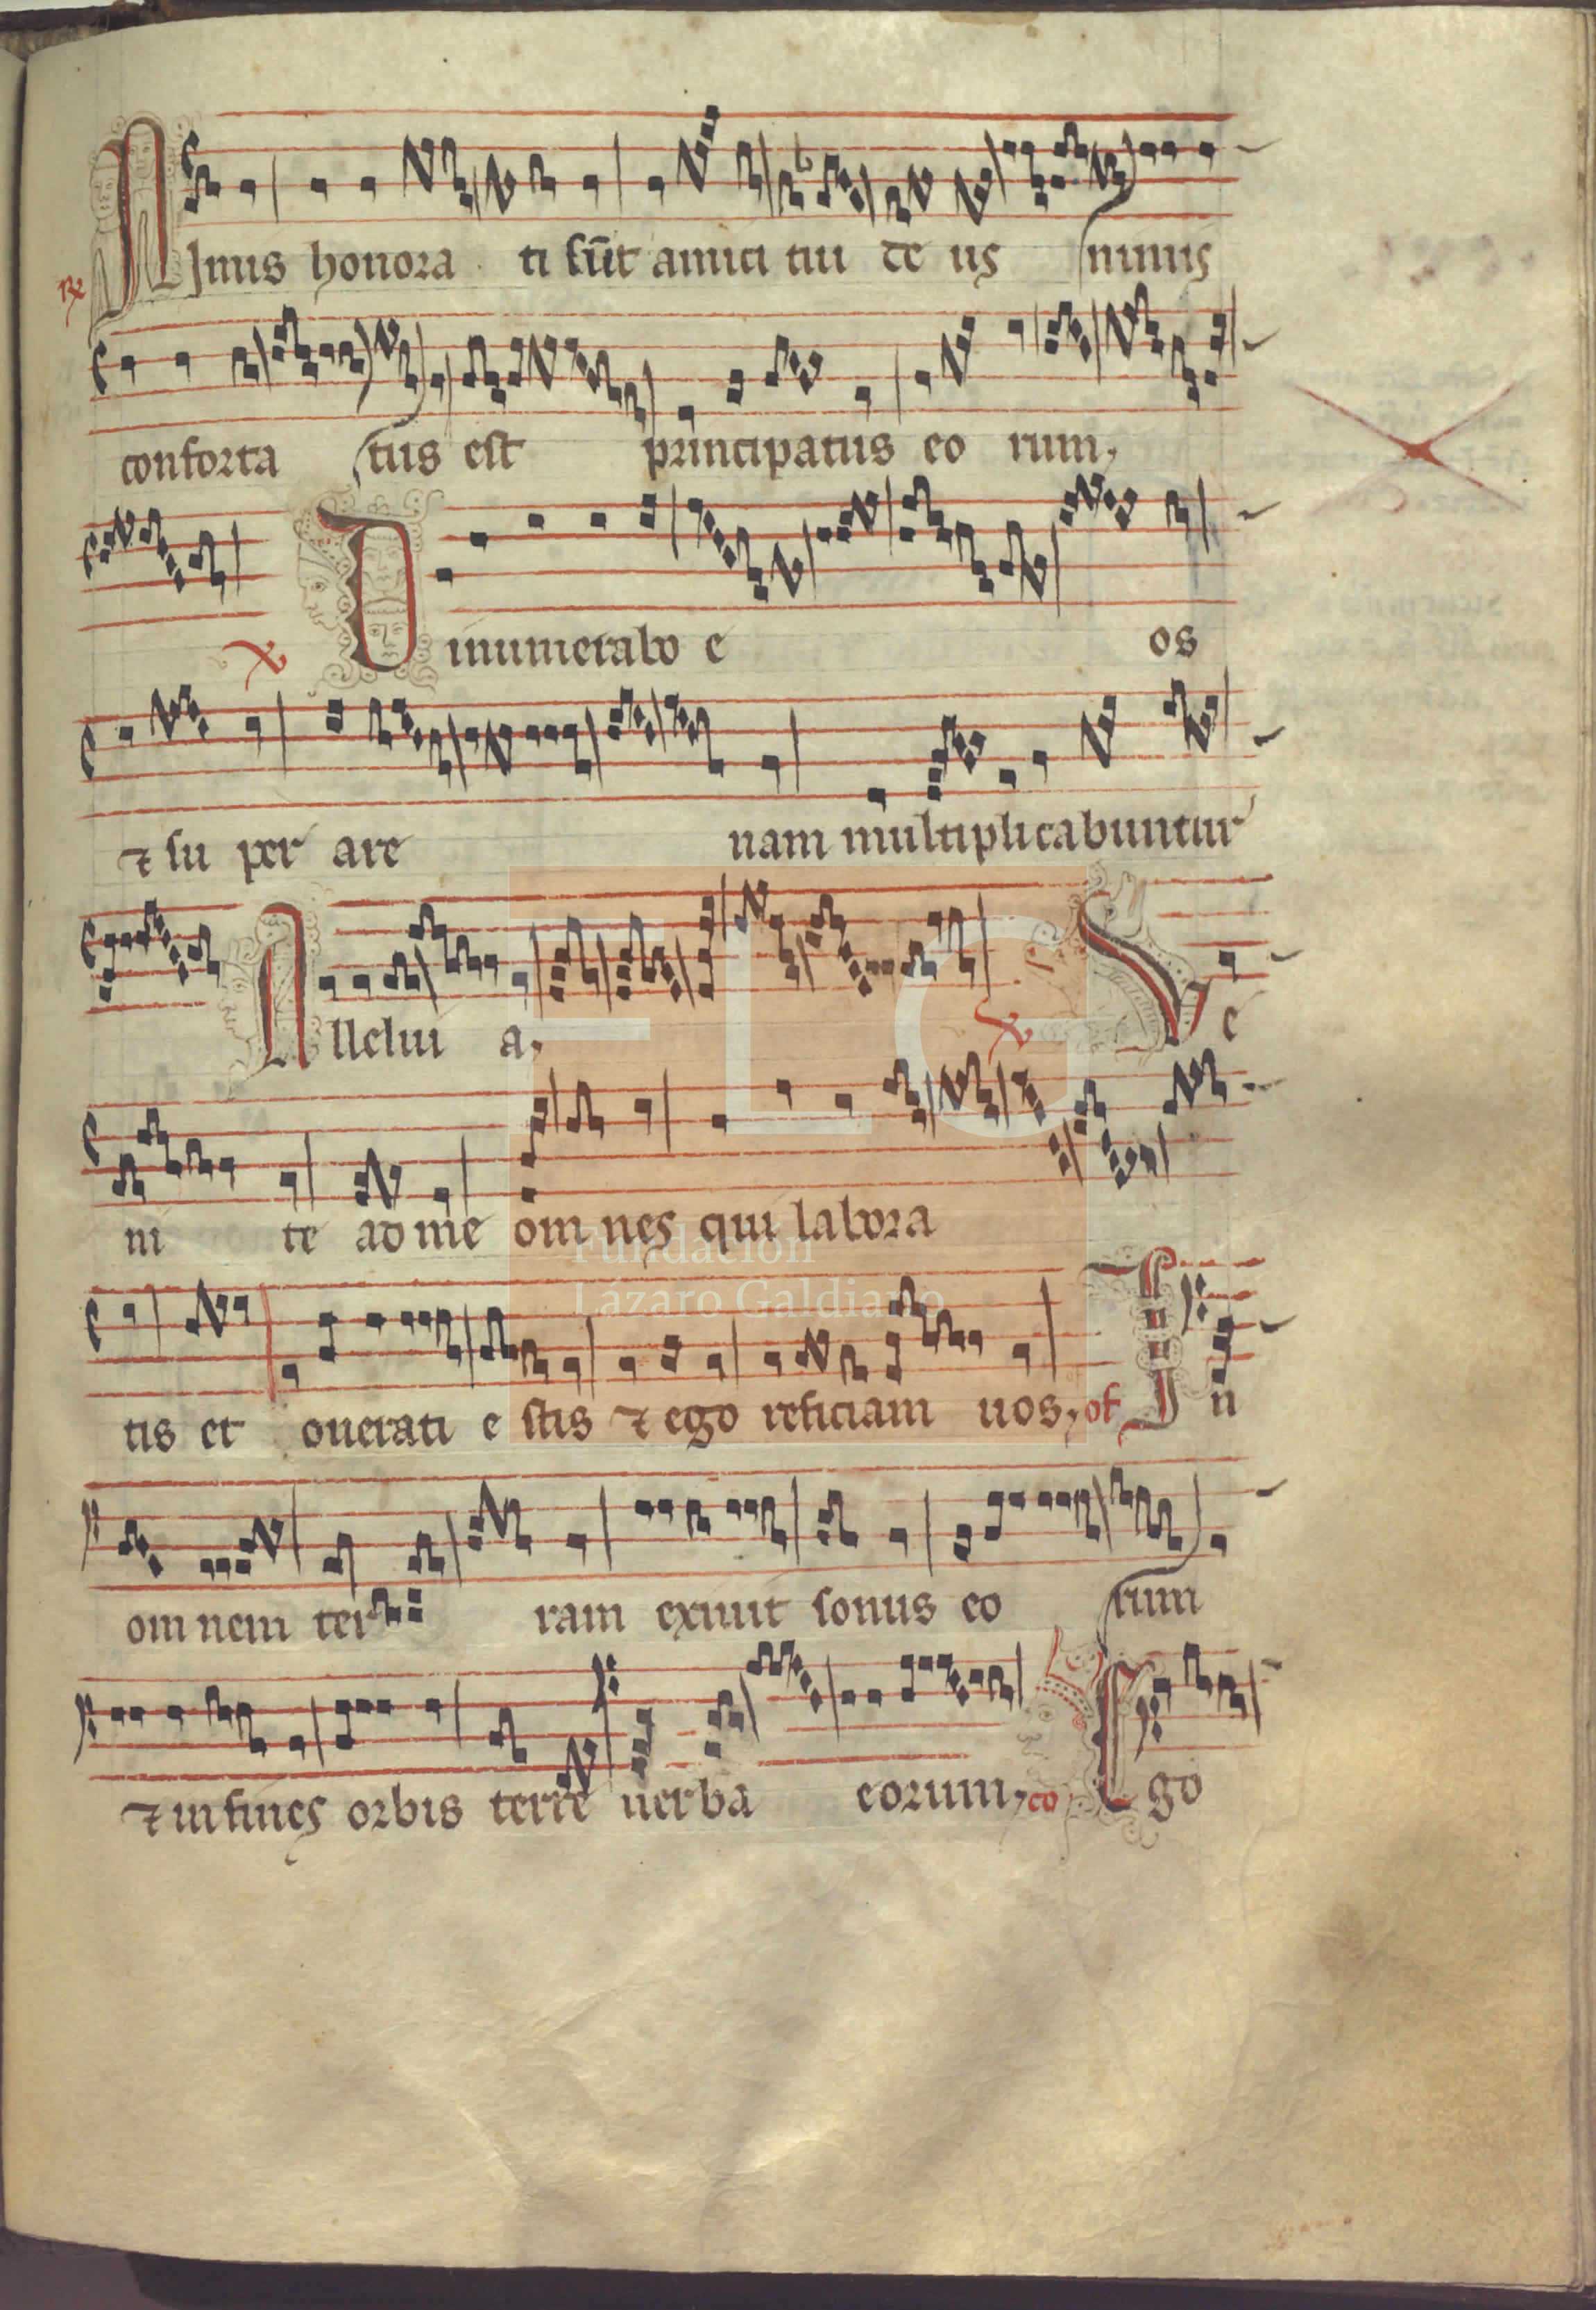 R Nimis honora ti sũt amici tui de us nimis
conforta tus est principatus eo rum,
V Dinumerabo e os
⁊ su per are nam multiplicabuntur
Allelui a, V Ve
ni te ad me om nes qui labora
tis et onerati e stis ⁊ ego reficiam uos, of In
om nem ter ram exiuit sonus eo rum
⁊ in fines orbis terre uerba eorum, co Ego
FLG
Fundación
Lázaro Galdiano